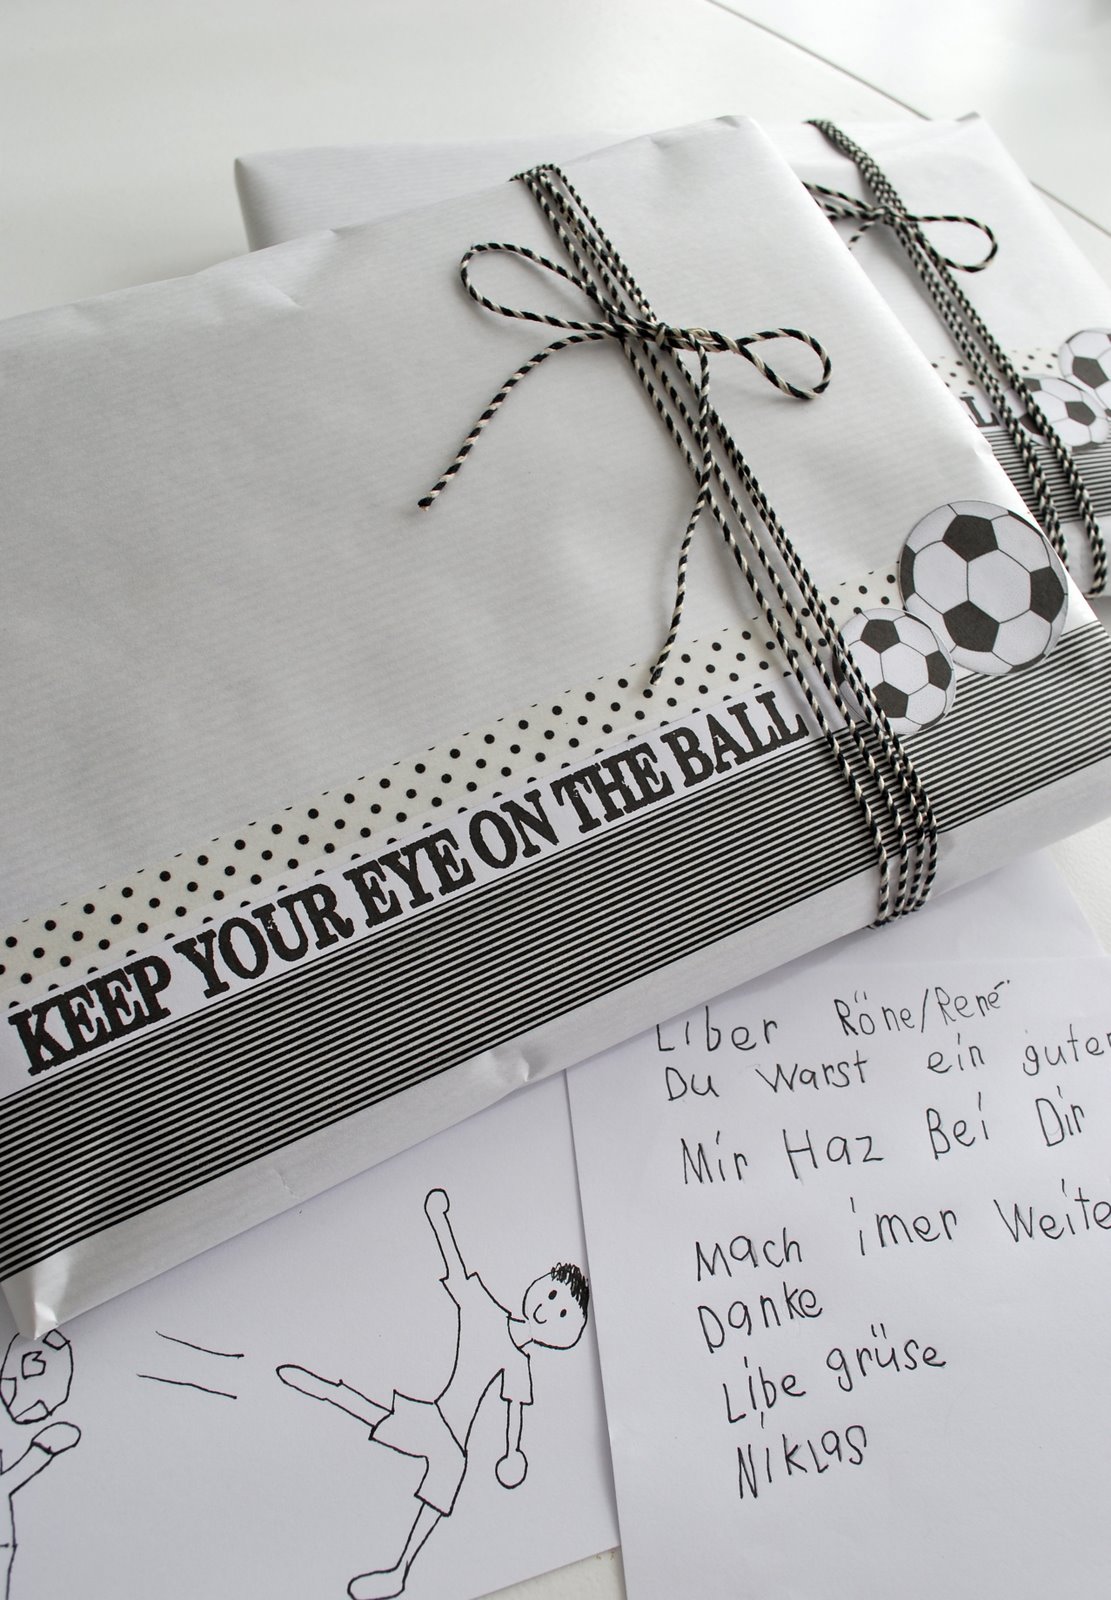 L
KEEP YOUR EYE ON THE BALL
Liber Röne/René
Du Warst ein guter
Mir Haz Bei Dir
Mach imer Weite
Danke
Libe grüse
Niklas